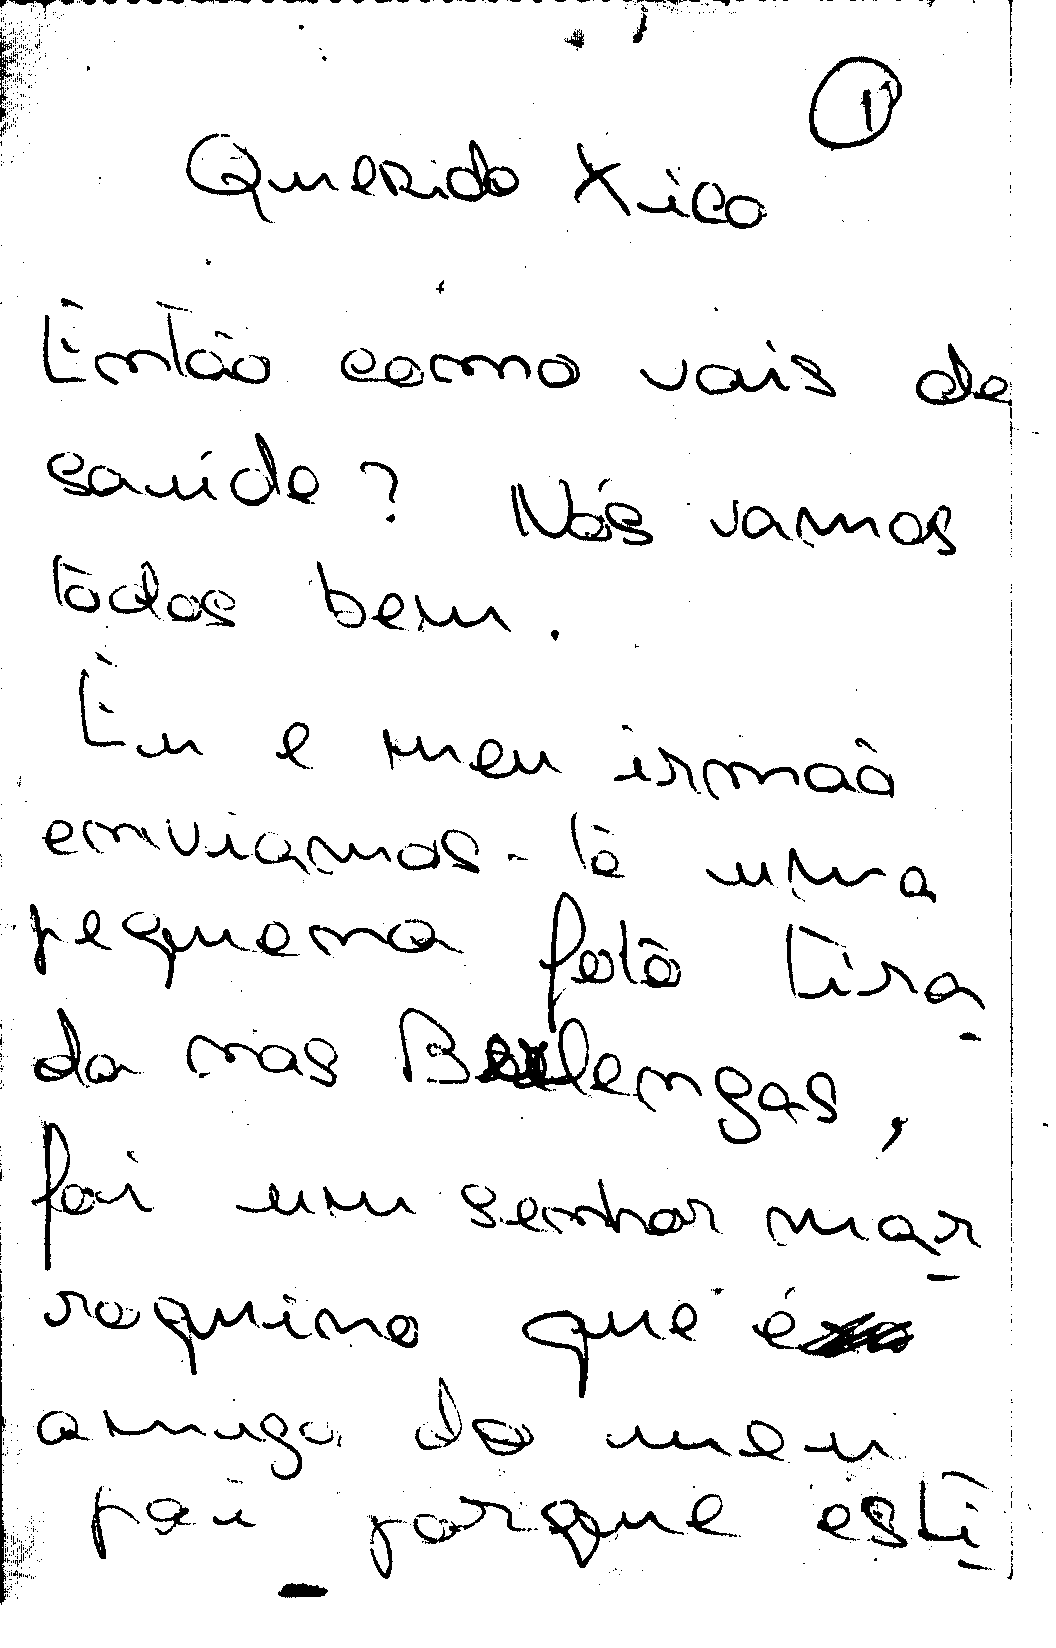 1
Querido Xico
Então como vais de
saúde? Nós vamos
todos bem.
Eu e meu irmão
enviamos-te uma
pequena foto tira
da nas Berlengas,
foi um senhor mar
roquino que é
amigo do meu
pai porque esti